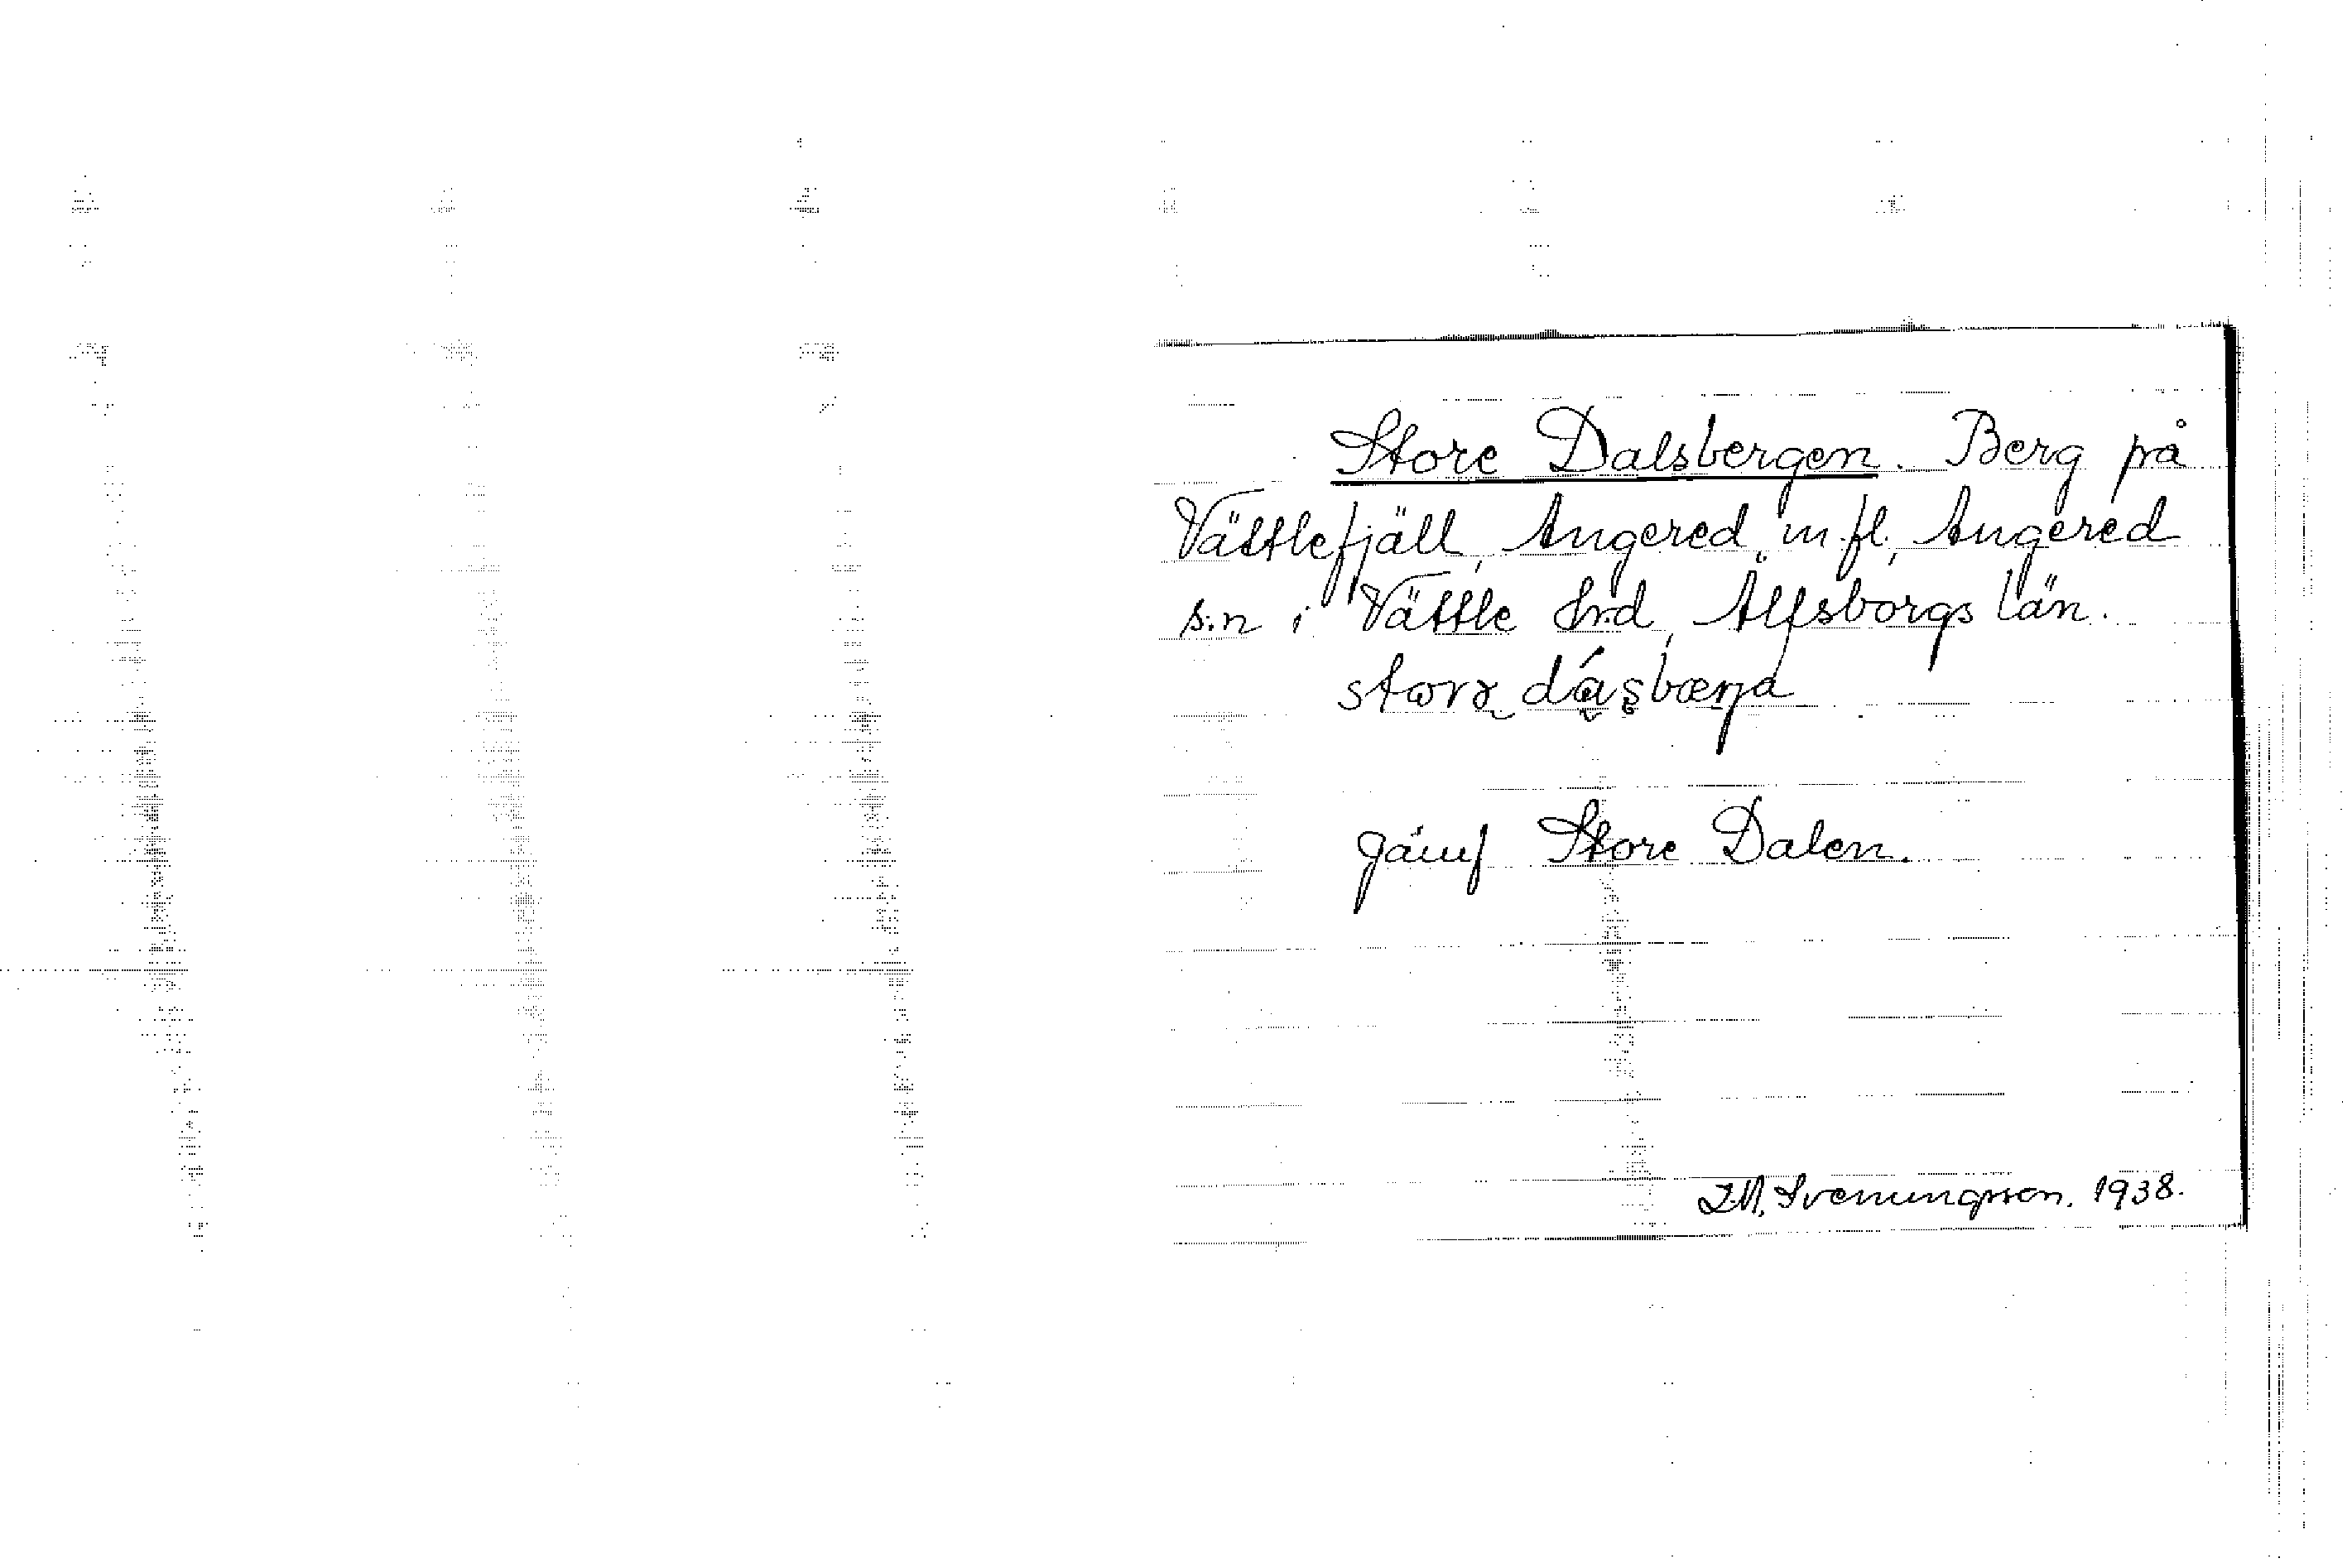 Store Dalsbergen. Berg på
Vättlefjäll, Angered m.fl., Angered
s:n i Vättle hrd, Älfsborgs län.
Jämf Store Dalen.
Svenungsson. 1938.